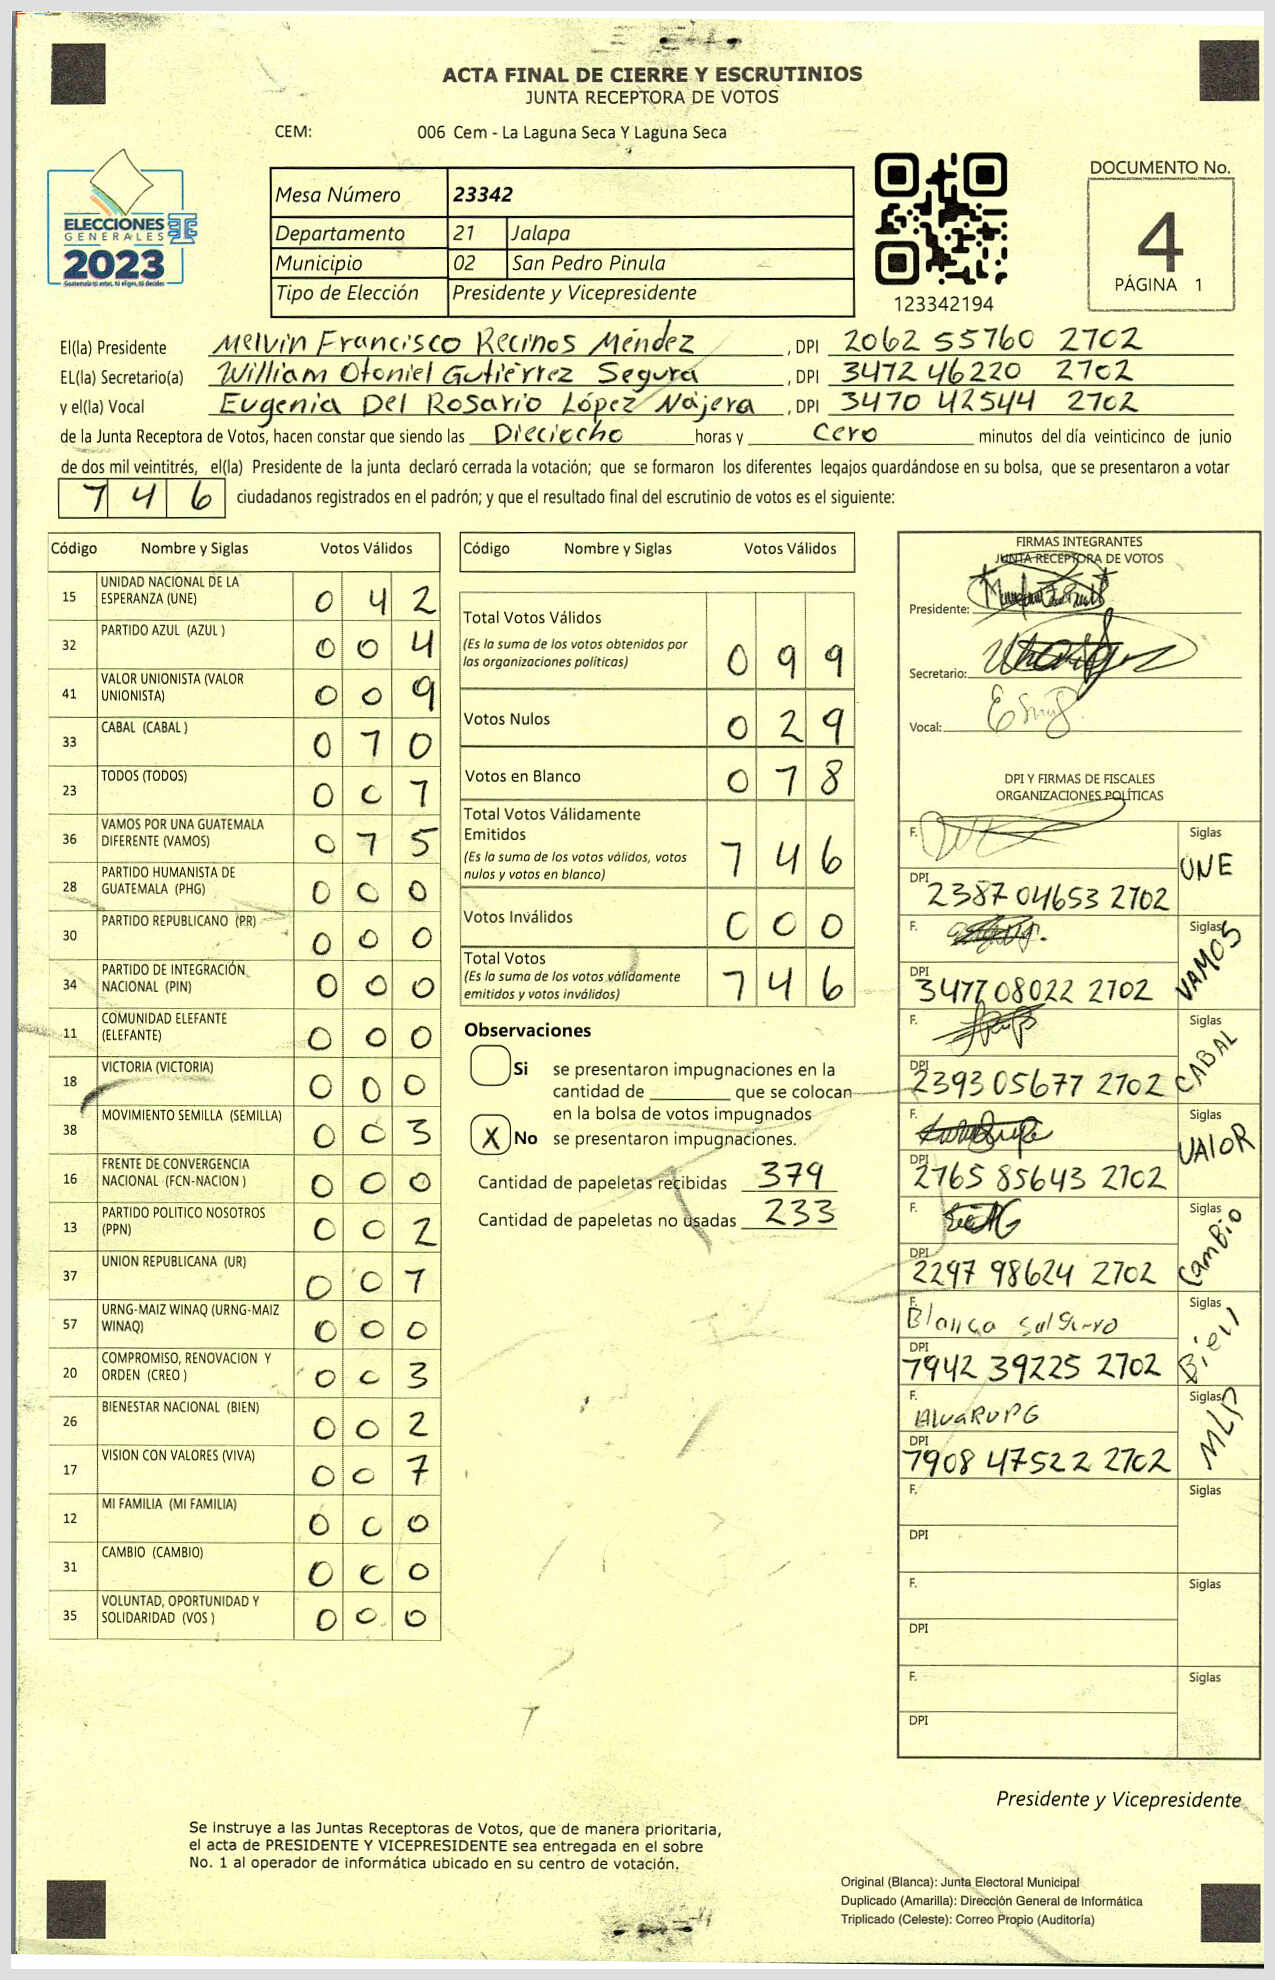 ACTA FINAL DE CIERRE Y ESCRUTINIOS
JUNTA RECEPTORA DE VOTOS
CEM: 006 Cem - La Laguna Seca Y Laguna Seca
ELECCIONES
GENERALES
2023
Mesa Número 23342
Departamento 21 Jalapa
Municipio 02 San Pedro Pinula
Tipo de Elección Presidente y Vicepresidente
123342194
DOCUMENTO No.
4
PÁGINA 1
El(la) Presidente Melvin Francisco Recinos Méndez, DPI 2062 55760 2702
EL(la) Secretario(a) William Otoniel Gutiérrez Segura, DPI 3472 46220 2702
y el(la) Vocal Eugenia Del Rosario López Nájera, DPI 3470 42544 2702
de la Junta Receptora de Votos, hacen constar que siendo las Dieciocho horas y Cero minutos del día veinticinco de junio
de dos mil veintitrés, el(la) Presidente de la junta declaró cerrada la votación; que se formaron los diferentes legajos guardándose en su bolsa, que se presentaron a votar
746 ciudadanos registrados en el padrón; y que el resultado final del escrutinio de votos es el siguiente:
Código Nombre y Siglas Votos Válidos
15 UNIDAD NACIONAL DE LA ESPERANZA (UNE) 0 4 2
32 PARTIDO AZUL (AZUL ) 0 0 4
41 VALOR UNIONISTA (VALOR UNIONISTA) 0 0 9
33 CABAL (CABAL ) 0 7 0
23 TODOS (TODOS) 0 0 7
36 VAMOS POR UNA GUATEMALA DIFERENTE (VAMOS) 0 7 5
28 PARTIDO HUMANISTA DE GUATEMALA (PHG) 0 0 0
30 PARTIDO REPUBLICANO (PR) 0 0 0
34 PARTIDO DE INTEGRACIÓN NACIONAL (PIN) 0 0 0
11 COMUNIDAD ELEFANTE (ELEFANTE) 0 0 0
18 VICTORIA (VICTORIA) 0 0 0
38 MOVIMIENTO SEMILLA (SEMILLA) 0 0 3
16 FRENTE DE CONVERGENCIA NACIONAL (FCN-NACION ) 0 0 0
13 PARTIDO POLITICO NOSOTROS (PPN) 0 0 2
37 UNION REPUBLICANA (UR) 0 0 7
57 URNG-MAIZ WINAQ (URNG-MAIZ WINAQ) 0 0 0
20 COMPROMISO, RENOVACION Y ORDEN (CREO ) 0 0 3
26 BIENESTAR NACIONAL (BIEN) 0 0 2
17 VISION CON VALORES (VIVA) 0 0 7
12 MI FAMILIA (MI FAMILIA) 0 0 0
31 CAMBIO (CAMBIO) 0 0 0
35 VOLUNTAD, OPORTUNIDAD Y SOLIDARIDAD (VOS ) 0 0 0
Código Nombre y Siglas Votos Válidos
Total Votos Válidos 0 9 9
(Es la suma de los votos obtenidos por
las organizaciones políticas)
Votos Nulos 0 2 9
Votos en Blanco 0 7 8
Total Votos Válidamente
Emitidos 7 4 6
(Es la suma de los votos válidos, votos
nulos y votos en blanco)
Votos Inválidos 0 0 0
Total Votos 7 4 6
(Es la suma de los votos válidamente
emitidos y votos inválidos)
Observaciones
Si se presentaron impugnaciones en la
cantidad de ________ que se colocan
en la bolsa de votos impugnados
X No se presentaron impugnaciones.
Cantidad de papeletas recibidas 379
Cantidad de papeletas no usadas 233
FIRMAS INTEGRANTES
JUNTA RECEPTORA DE VOTOS
Presidente:
Secretario:
Vocal:
DPI Y FIRMAS DE FISCALES
ORGANIZACIONES POLÍTICAS
F. Siglas UNE
DPI 2387 04653 2702
F. Siglas VAMOS
DPI 3477 08022 2702
F. Siglas CABAL
DPI 2393 05677 2702
F. Siglas VALOR
DPI 2765 85643 2702
F. Siglas Cambio
DPI 2297 98624 2702
F. Blanca Siglas Bien
DPI 7942 39225 2702
F. Siglas MLP
DPI 7908 47522 2702
F. Siglas
DPI
F. Siglas
DPI
F. Siglas
DPI
Presidente y Vicepresidente
Se instruye a las Juntas Receptoras de Votos, que de manera prioritaria,
el acta de PRESIDENTE Y VICEPRESIDENTE sea entregada en el sobre
No. 1 al operador de informática ubicado en su centro de votación.
Original (Blanca): Junta Electoral Municipal
Duplicado (Amarilla): Dirección General de Informática
Triplicado (Celeste): Correo Propio (Auditoría)